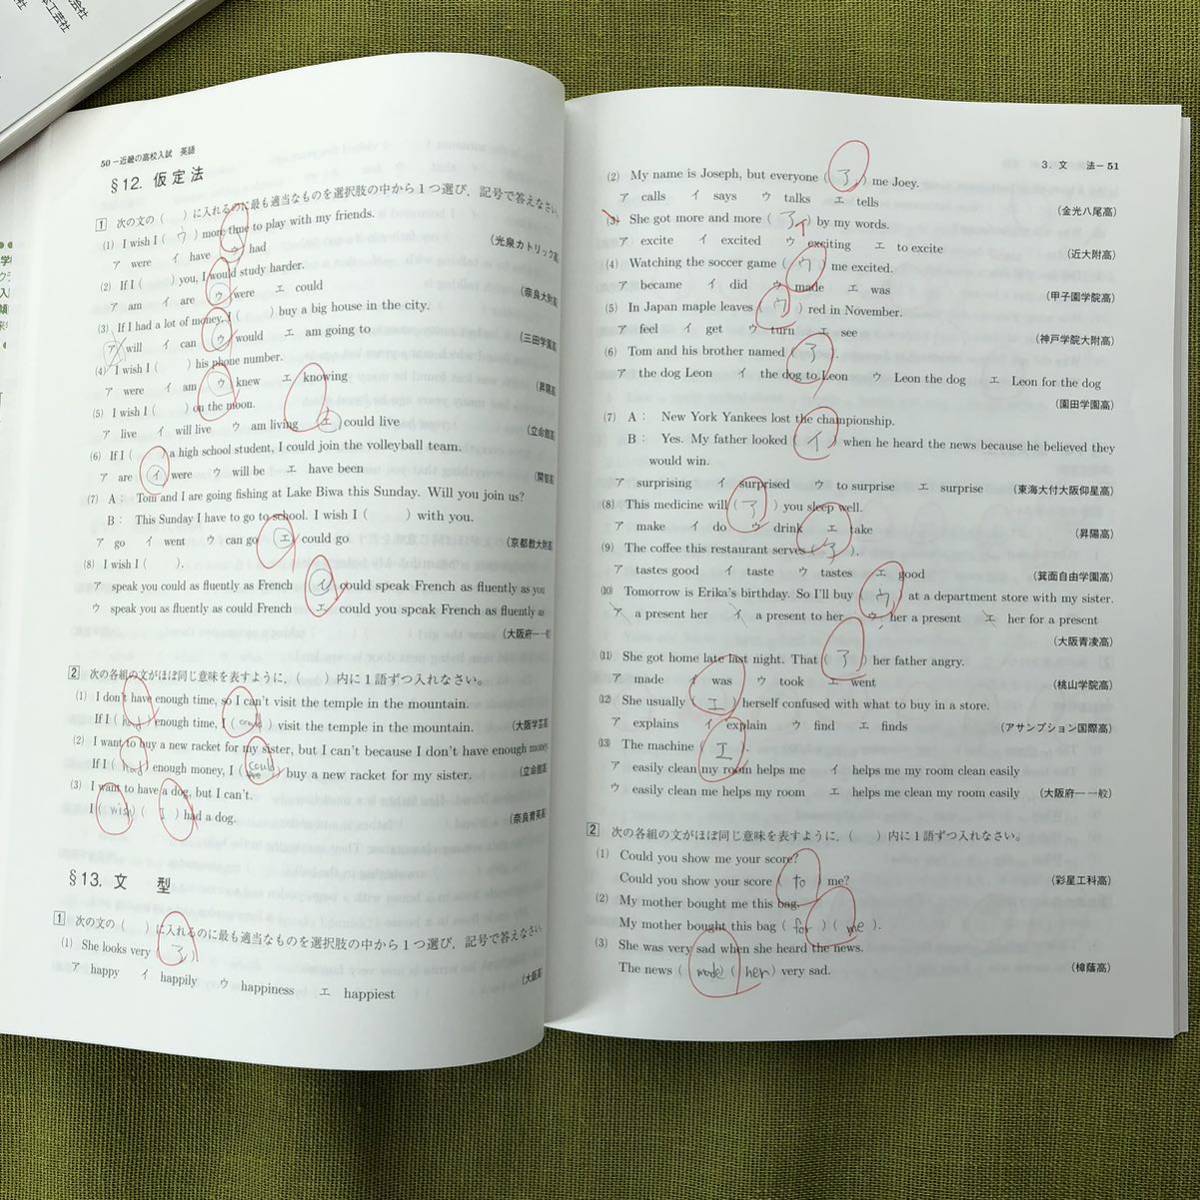 50－近畿の高校入試 英語
§12. 仮定法
1 次の文の( )に入れるのに最も適当なものを選択肢の中から1つ選び，記号で答えなさい。
(1) I wish I ( ウ ) more time to play with my friends.
ア were イ have ウ had
(光泉カトリック高)
(2) If I ( ) you, I would study harder.
ア am イ are ウ were エ could
(奈良大附高)
(3) If I had a lot of money, I ( ) buy a big house in the city.
ア will イ can ウ would エ am going to
(三田学園高)
(4) I wish I ( ) his phone number.
ア were イ am ウ knew エ knowing
(昇陽高)
(5) I wish I ( ) on the moon.
ア live イ will live ウ am living エ could live
(立命館高)
(6) If I ( ) a high school student, I could join the volleyball team.
ア are イ were ウ will be エ have been
(開智高)
(7) A： Tom and I are going fishing at Lake Biwa this Sunday. Will you join us?
B： This Sunday I have to go to school. I wish I ( ) with you.
ア go イ went ウ can go エ could go
(京都教大附高)
(8) I wish I ( ).
ア speak you could as fluently as French イ could speak French as fluently as you
ウ speak you as fluently as could French エ could you speak French as fluently as
(大阪府一一般)
2 次の各組の文がほぼ同じ意味を表すように，( )内に1語ずつ入れなさい。
(1) I don't have enough time, so I can't visit the temple in the mountain.
If I ( had ) enough time, I ( could ) visit the temple in the mountain.
(大阪学芸高)
(2) I want to buy a new racket for my sister, but I can't because I don't have enough money.
If I ( had ) enough money, I ( could ) buy a new racket for my sister.
(立命館高)
(3) I want to have a dog, but I can't.
I ( wish ) ( I ) had a dog.
(奈良育英高)
§13. 文 型
1 次の文の( )に入れるのに最も適当なものを選択肢の中から1つ選び，記号で答えなさい。
(1) She looks very ( ア ).
ア happy イ happily ウ happiness エ happiest
(大阪高)
3. 文 法－51
(2) My name is Joseph, but everyone ( ア ) me Joey.
ア calls イ says ウ talks エ tells
(金光八尾高)
(3) She got more and more ( ア イ ) by my words.
ア excite イ excited ウ exciting エ to excite
(近大附高)
(4) Watching the soccer game ( ウ ) me excited.
ア became イ did ウ made エ was
(甲子園学院高)
(5) In Japan maple leaves ( ウ ) red in November.
ア feel イ get ウ turn エ see
(神戸学院大附高)
(6) Tom and his brother named ( ア ).
ア the dog Leon イ the dog to Leon ウ Leon the dog エ Leon for the dog
(園田学園高)
(7) A： New York Yankees lost the championship.
B： Yes. My father looked ( イ ) when he heard the news because he believed they
would win.
ア surprising イ surprised ウ to surprise エ surprise (東海大付大阪仰星高)
(8) This medicine will ( ア ) you sleep well.
ア make イ do ウ drink エ take
(昇陽高)
(9) The coffee this restaurant serves ( ア ).
ア tastes good イ taste ウ tastes エ good
(箕面自由学園高)
(10) Tomorrow is Erika's birthday. So I'll buy ( ウ ) at a department store with my sister.
ア a present her イ a present to her ウ her a present エ her for a present
(大阪青凌高)
(11) She got home late last night. That ( ア ) her father angry.
ア made イ was ウ took エ went
(桃山学院高)
(12) She usually ( エ ) herself confused with what to buy in a store.
ア explains イ explain ウ find エ finds
(アサンプション国際高)
(13) The machine ( エ ).
ア easily clean my room helps me イ helps me my room clean easily
ウ easily clean me helps my room エ helps me clean my room easily (大阪府一一般)
2 次の各組の文がほぼ同じ意味を表すように，( )内に1語ずつ入れなさい。
(1) Could you show me your score?
Could you show your score ( to ) me?
(彩星工科高)
(2) My mother bought me this bag.
My mother bought this bag ( for ) ( me ).
(3) She was very sad when she heard the news.
The news ( made ( her ) very sad.
(樟蔭高)